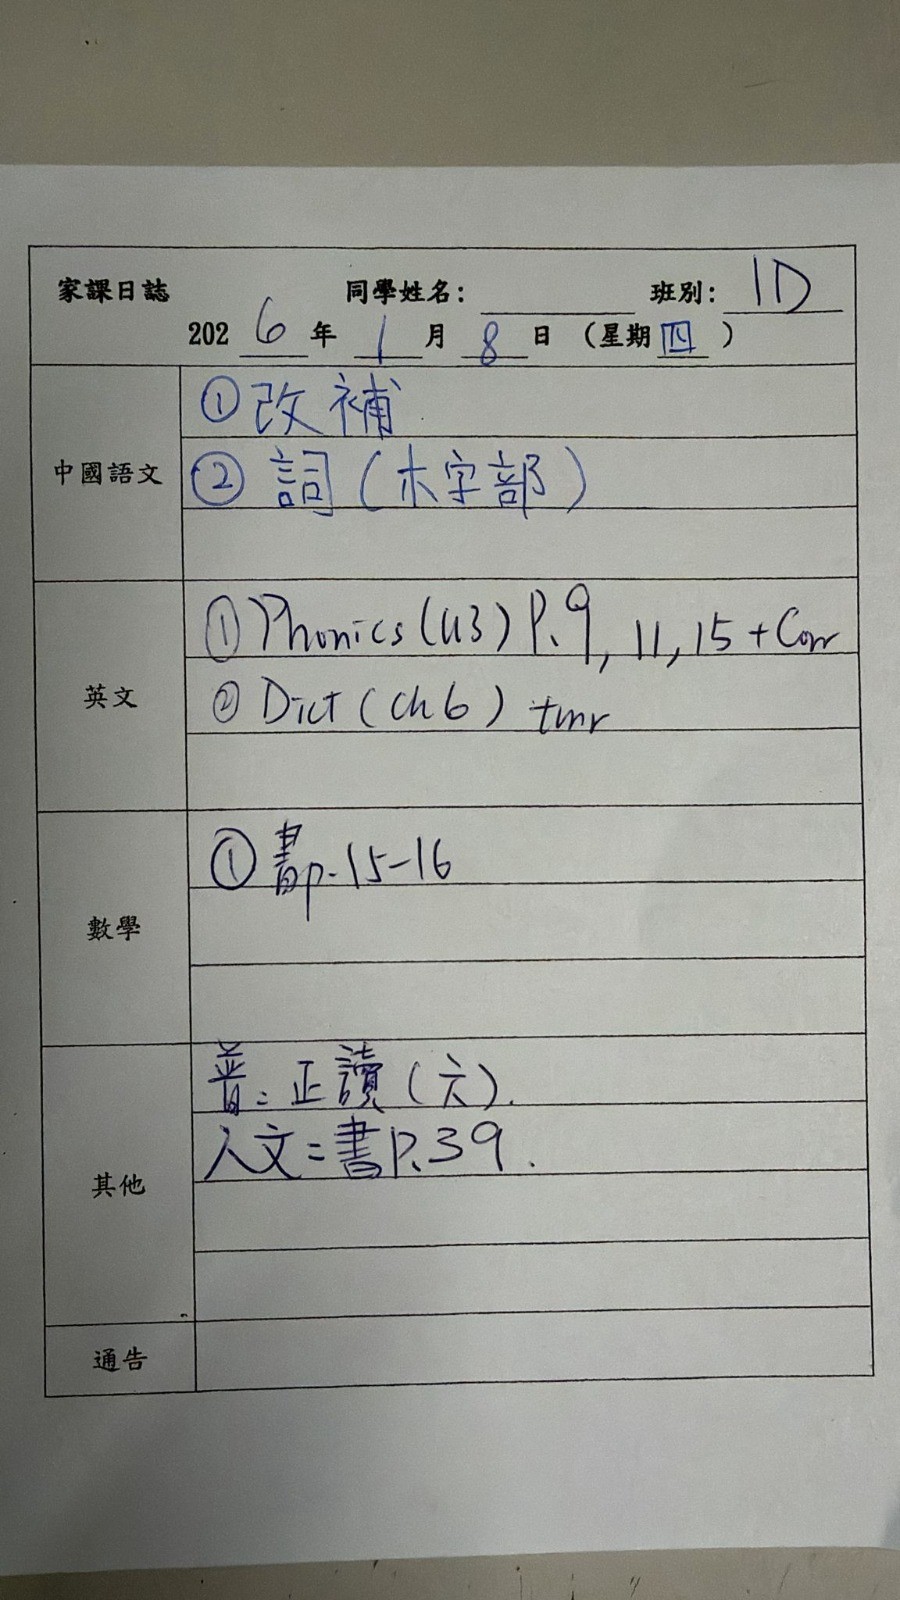 家課日誌 同學姓名: 班別: 1D
2026年1月8日 (星期四)
中國語文
①改補
②詞(木字部)
英文
①Phonics(U3) P.9, 11, 15 + Corr
②Dict (Ch 6) tmr
數學
①書p.15-16
其他
普: 正讀(六).
人文: 書P.39.
通告